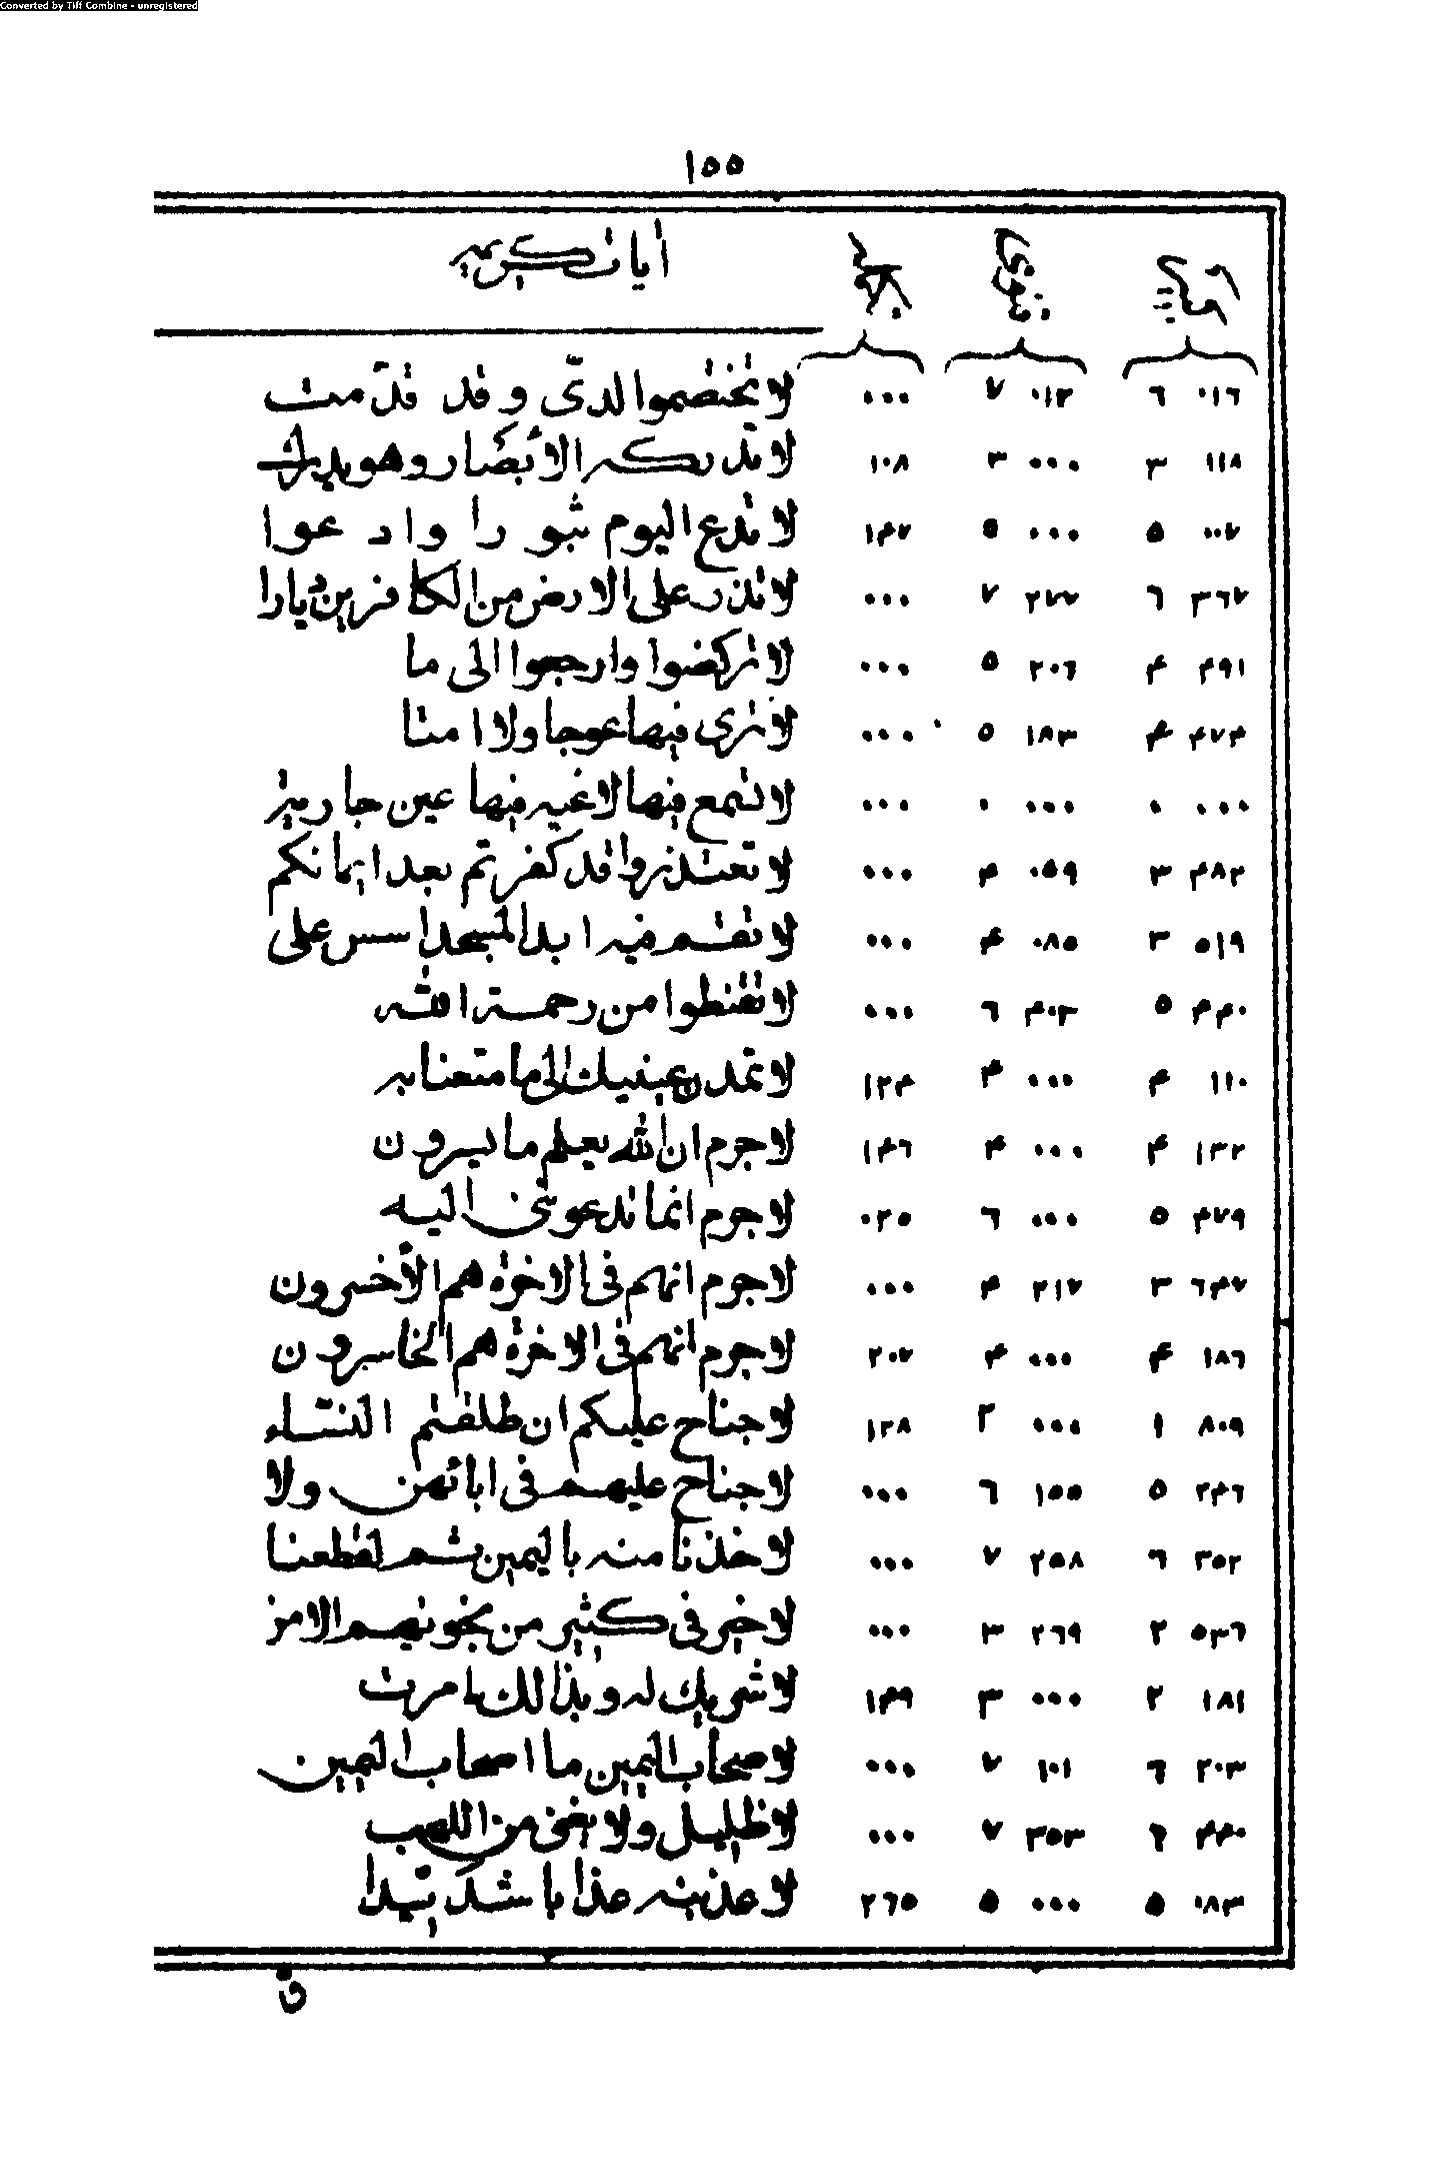 Converted by Tiff Combine - unregistered
١٥٥
ايات كريمه
٠١٦ ٦ ٠١٣ ٧ ٠٠٠ لا تختصموا لدىّ و قد قدّمت
١١٨ ٣ ٠٠٠ ٣ ١٠٨ لا تدركه الأبصار وهو يدرك
٠٠٧ ٥ ٠٠٠ ٥ ١٤٧ لا تدع اليوم ثبو را واد عوا
٣٦٧ ٦ ٢٧٧ ٧ ٠٠٠ لا تذر على الارض من الكافرين ديارا
٤٩١ ٤ ٢٠٦ ٥ ٠٠٠ لا تركضوا وارجعوا الى ما
٤٧٤ ٤ ١٨٣ ٥ ٠٠٠ لا ترى فيها عوجا ولا امتا
٠٠٠ ٠ ٠٠٠ ٠ ٠٠٠ لا تسمع فيها لاغيه فيها عين جاريه
٤٨٢ ٣ ٠٥٩ ٤ ٠٠٠ لا تعتذروا قد كفرتم بعد ايمانكم
٥١٩ ٣ ٠٨٥ ٤ ٠٠٠ لا تقم فيه ابدا لمسجد اسس على
٤٤٠ ٥ ٤٠٣ ٦ ٠٠٠ لا تقنطوا من رحمة الله
١١٠ ٤ ٠٠٠ ٤ ١٢٤ لا تمدن عينيك الى ما متعنا به
١٣٢ ٤ ٠٠٠ ٤ ١٤٦ لا جرم ان الله يعلم ما يسرون
٤٧٩ ٥ ٠٠٠ ٦ ٠٢٥ لا جرم انما تدعوننى اليه
٦٤٧ ٣ ٢١٧ ٤ ٠٠٠ لا جرم انهم فى الاخرة هم الأخسرون
١٨٦ ٤ ٠٠٠ ٤ ٢٠٧ لا جرم انهم فى الاخرة هم الخاسرون
٨٠٩ ١ ٠٠٠ ٢ ١٣٨ لا جناح عليكم ان طلقتم النساء
٢٤٦ ٥ ١٥٥ ٦ ٠٠٠ لا جناح عليهم فى ابائهن ولا
٣٥٢ ٦ ٢٥٨ ٧ ٠٠٠ لا خذنا منه باليمين ثم لقطعنا
٥٣٦ ٢ ٢٦٩ ٣ ٠٠٠ لا خير فى كثير من نجويهم الا من
١٨١ ٢ ٠٠٠ ٣ ١٤٩ لا شريك له و بذالك امرت
٢٠٣ ٦ ١٠١ ٧ ٠٠٠ لا صحاب اليمين ما اصحاب اليمين
٤٤٠ ٦ ٣٥٣ ٧ ٠٠٠ لا ظليل ولا يغنى من اللهب
٠٨٣ ٥ ٠٠٠ ٥ ٢٦٥ لا عذبنه عذابا شديدا